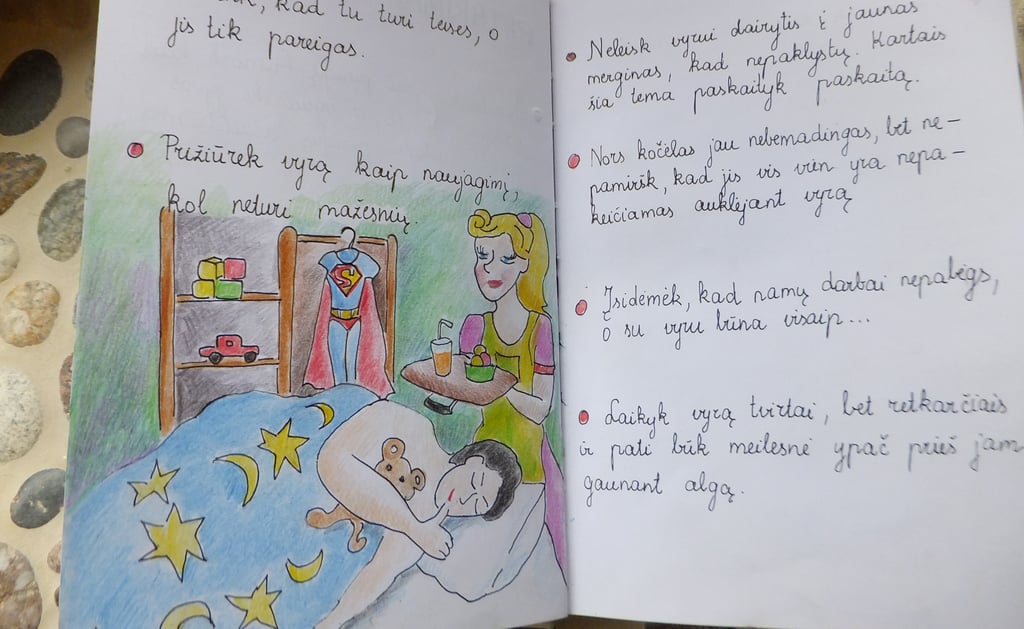 kad tu turi teises, o
jis tik pareigas.
Prižiūrėk vyrą kaip naujagimį,
kol neturi mažesnių.
S
Neleisk vyrui dairytis į jaunas
merginas, kad nepaklystų. Kartais
šia tema paskaityk paskaitą.
Nors kočėlas jau nebemadingas, bet ne-
pamiršk, kad jis vis vien yra nepa-
keičiamas auklėjant vyrą
Įsidėmėk, kad namų darbai nepabėgs,
o su vyru būna visaip...
Laikyk vyrą tvirtai, bet retkarčiais
ir pati būk meilesnė ypač prieš jam
gaunant algą.